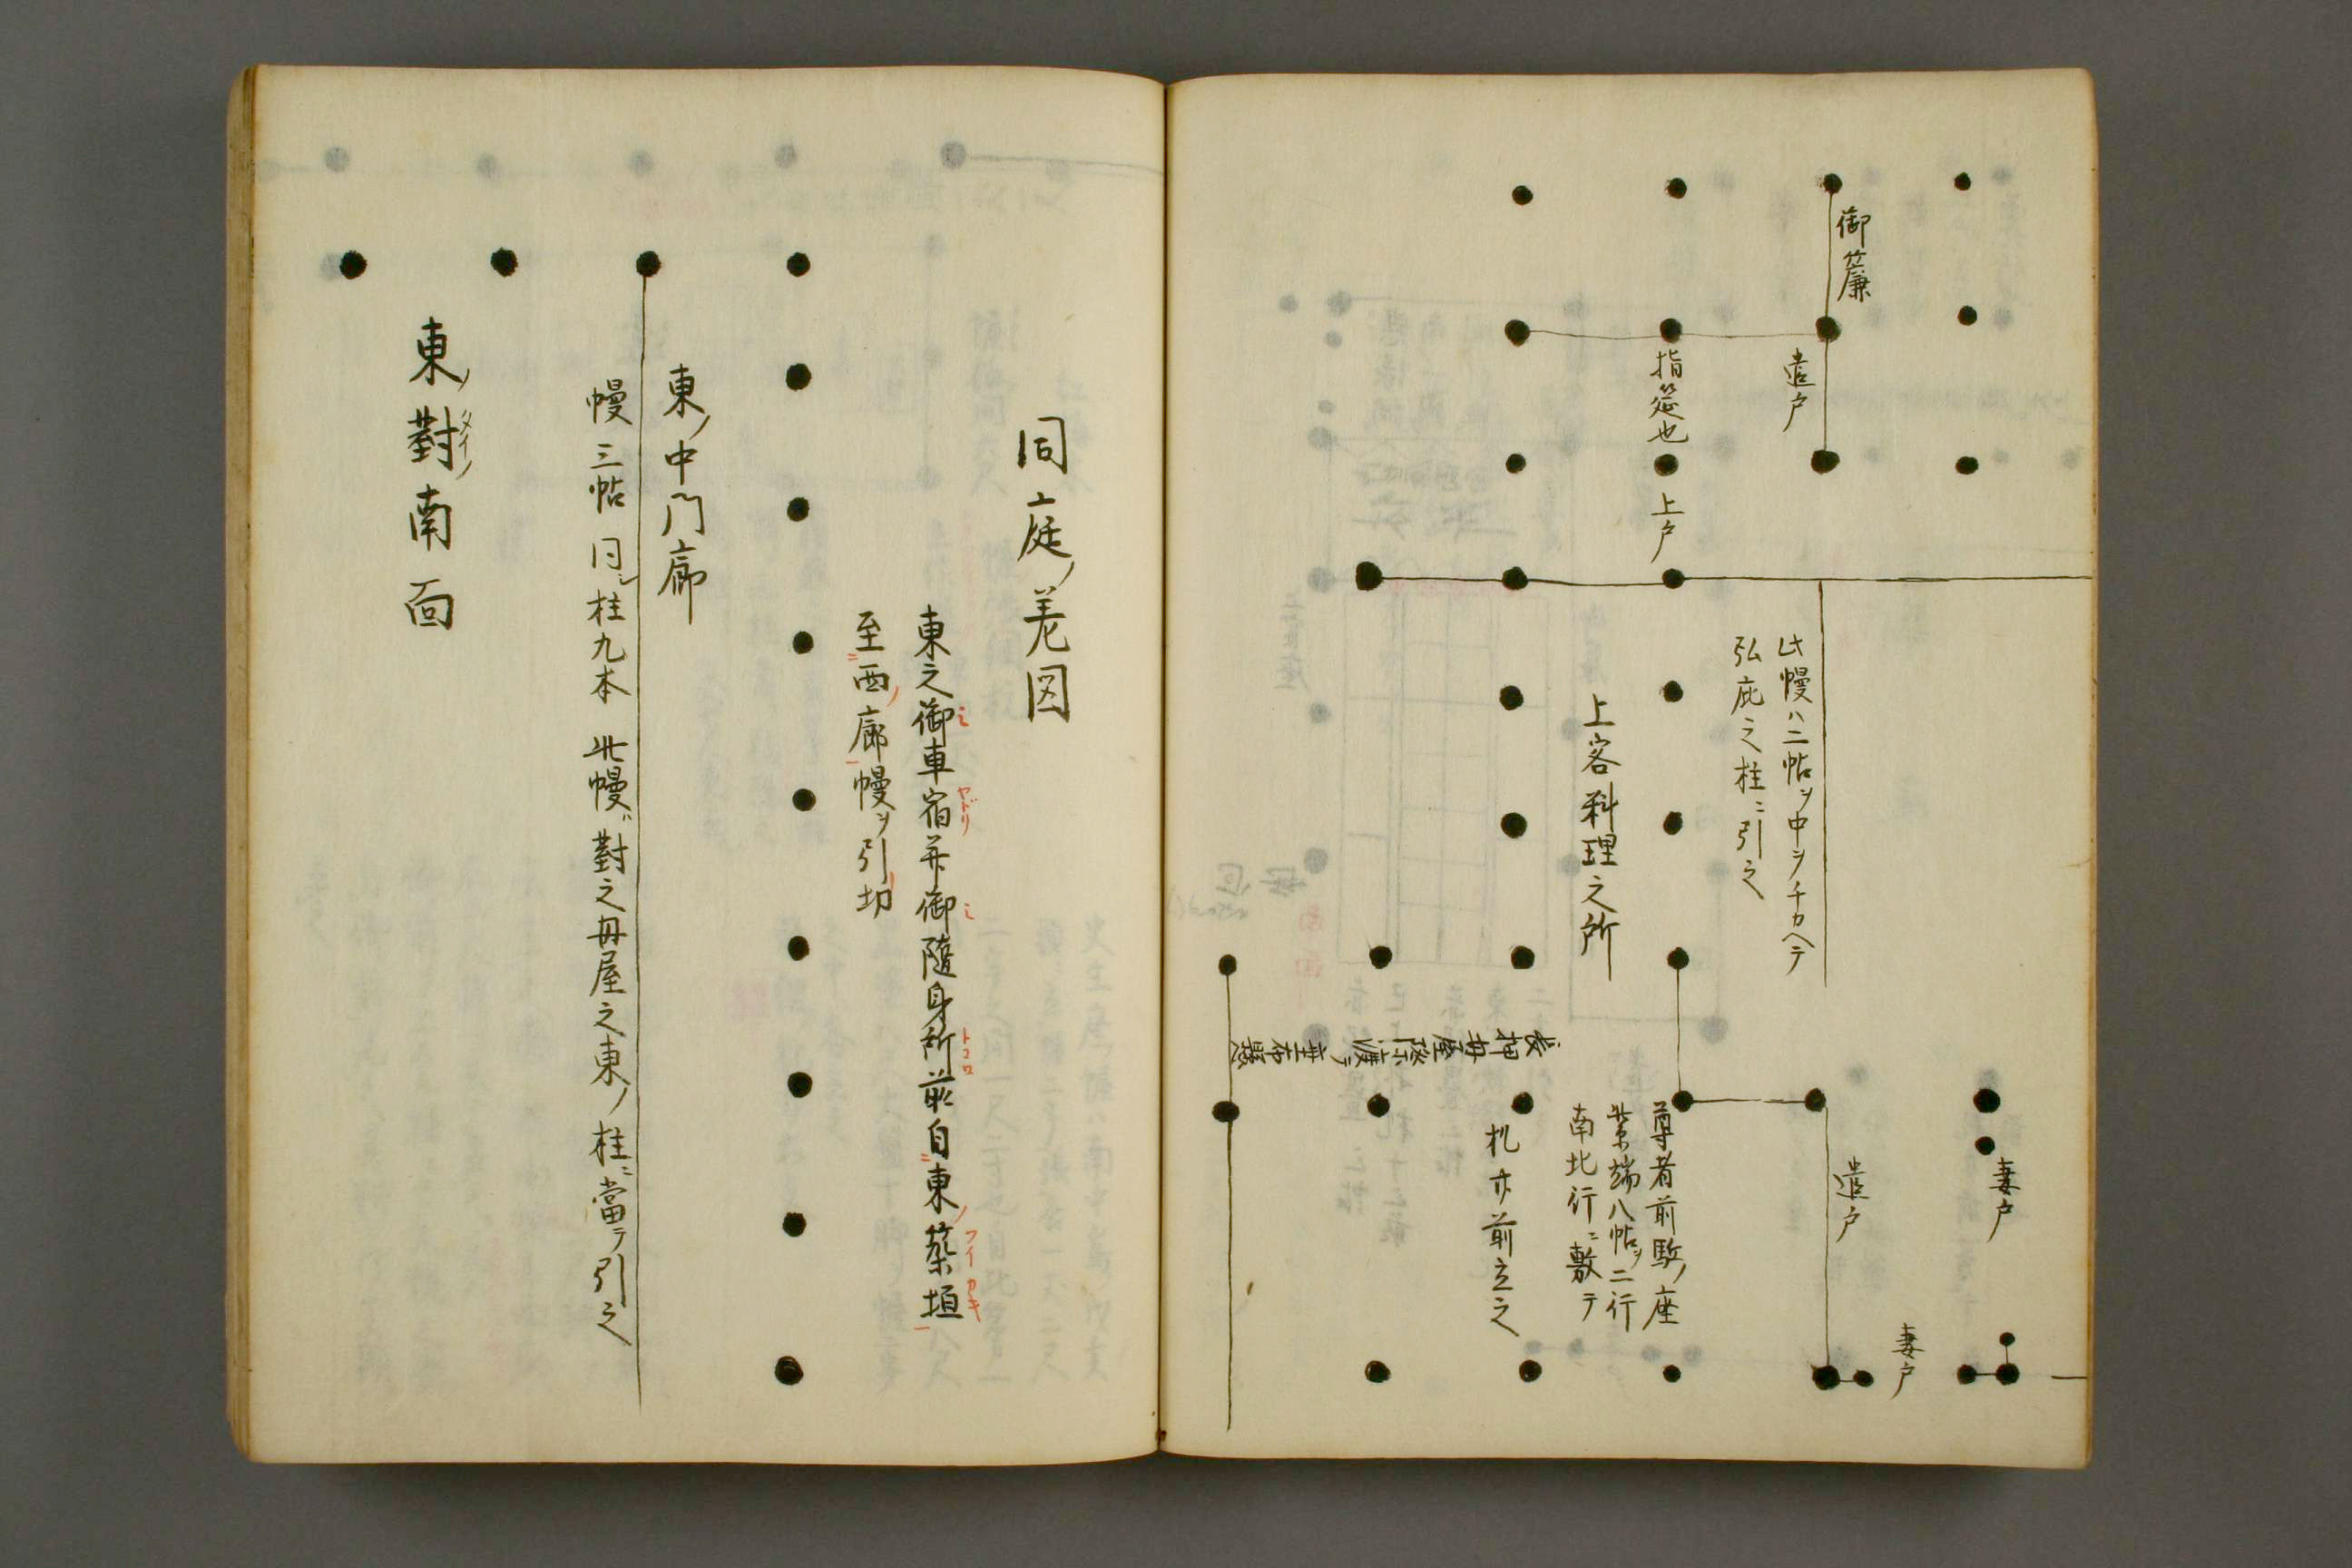 御簾
遣戸
指筵也
上戸
此幔ハ二帖ヲ中ヲチカヘテ
弘庇之柱ニ引之
上客料理之所
長押母屋際渡テ
妻戸
遣戸
妻戸
尊者前駈ノ座
紫端八帖ヲ二行
南北行ニ敷テ
机亦前立之
同庭ノ差図
東之御車宿并御隨身所前自東ノ築垣
至西ノ廊幔ヲ引切
東ノ中門廊
幔三帖同シ柱九本此幔ハ對之母屋之東ノ柱ニ當テ引之
東ノ對ノ南面